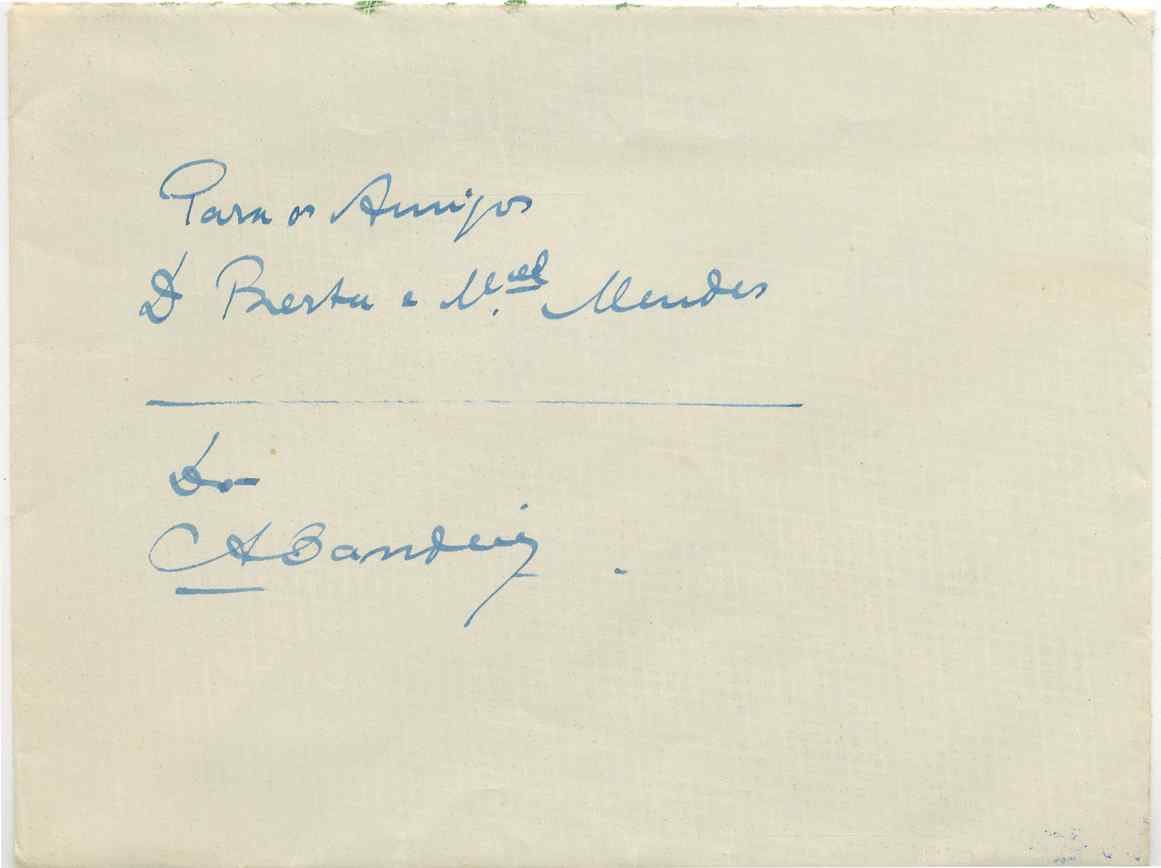 Para os Amigos
D Berta e M.el Mendes
Do
CABandeira